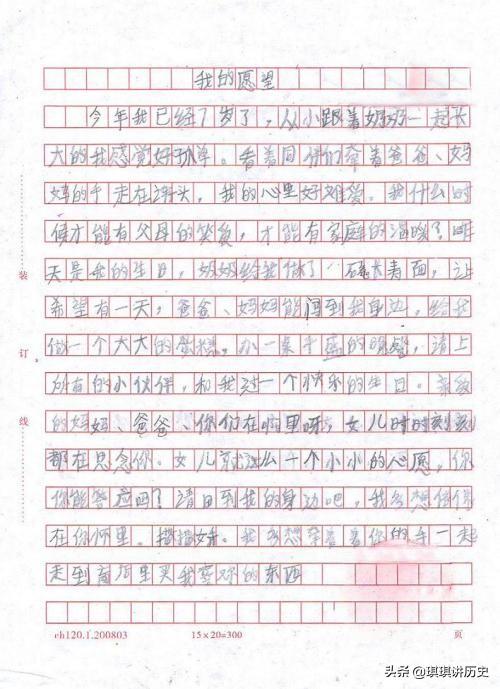 我的愿望
今年我已经7岁了，从小跟着奶奶一起长
大的我感觉好孤单。看着同伴们牵着爸爸、妈
妈的手走在街头，我的心里好难受。我什么时
候才能有父母的笑，才能有家庭的温暖？昨
天是我的生日，奶奶给我做了一碗长寿面，让
希望有一天，爸爸、妈妈能回到我身边，给我
做一个大大的蛋糕，办一桌丰盛的晚餐，请上
所有的小伙伴，和我过一个快乐的生日。亲爱
的妈妈、爸爸、你们在哪里呀，女儿时时刻刻
都在思念你。女儿就这么一个小小的心愿，你
你能答应吗？请回到我的身边吧，我多想
在你怀里。撒撒娇。我多想牵着着你的手一起
走到商场里买我喜欢的东西
装
订
线
ch120.1.200803 15×20=300 页
头条 @琪琪讲历史